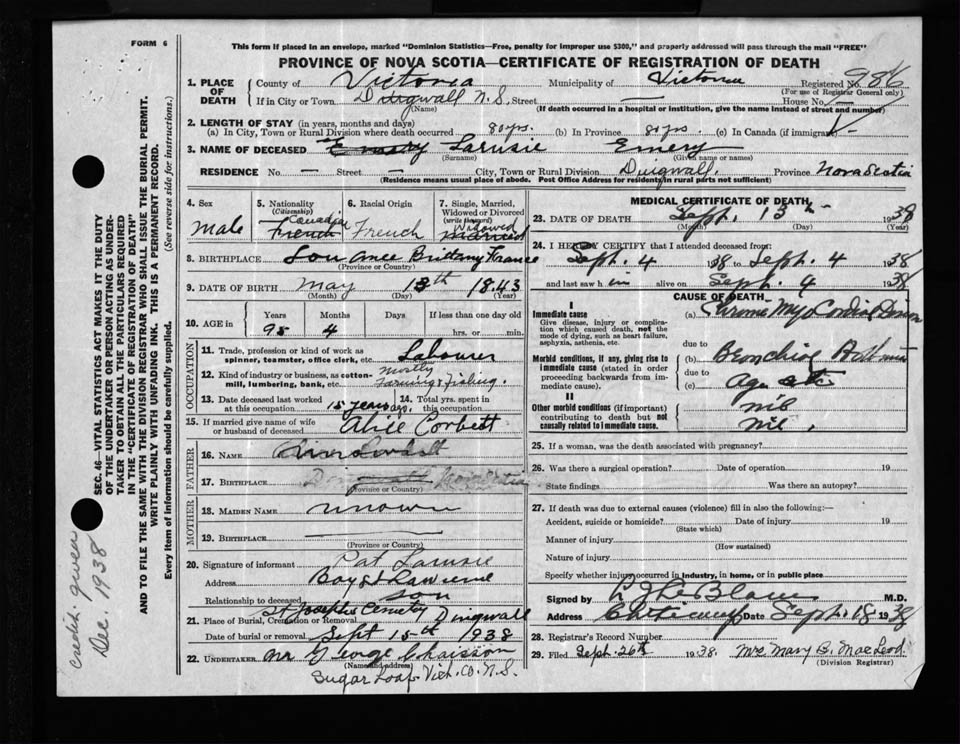 FORM 6
This form if placed in an envelope, marked "Dominion Statistics—Free, penalty for improper use $300," and properly addressed will pass through the mail "FREE"
PROVINCE OF NOVA SCOTIA—CERTIFICATE OF REGISTRATION OF DEATH
1. PLACE OF DEATH County of Victoria Municipality of Victoria Registered No. 986
(For use of Registrar General only)
If in City or Town Dingwall N.S. Street — House No. —
(Name) (If death occurred in a hospital or institution, give the name instead of street and number)
2. LENGTH OF STAY (in years, months and days)
(a) In City, Town or Rural Division where death occurred 80 yrs. (b) In Province 80 yrs. (c) In Canada (if immigrant) —
3. NAME OF DECEASED Larusie Emery
(Surname) (Given name or names)
RESIDENCE No. — Street — City, Town or Rural Division Dingwall. Province Nova Scotia
(Residence means usual place of abode. Post Office Address for residents in rural parts not sufficient)
4. Sex Male
5. Nationality (Citizenship) Canadian French
6. Racial Origin French
7. Single, Married, Widowed or Divorced (write the word) Widowed Married
8. BIRTHPLACE Brittany France
(Province or Country)
9. DATE OF BIRTH May 13th 1843
(Month) (Day) (Year)
10. AGE in Years 95 Months 4 Days If less than one day old hrs. or min.
OCCUPATION
11. Trade, profession or kind of work as spinner, teamster, office clerk, etc. Labourer
12. Kind of industry or business, as cotton-mill, lumbering, bank, etc. Mostly Farming & Fishing.
13. Date deceased last worked at this occupation 15 years ago.
14. Total yrs. spent in this occupation
15. If married give name of wife or husband of deceased Alice Corbett
FATHER
16. NAME
17. BIRTHPLACE Nova Scotia
(Province or Country)
MOTHER
18. MAIDEN NAME unown
19. BIRTHPLACE —
(Province or Country)
20. Signature of informant Pat Larusie
Address Bay St Lawrence
Relationship to deceased son
21. Place of Burial, Cremation or Removal St Josephs Cemetery Dingwall
Date of burial or removal Sept 15th 1938
22. UNDERTAKER Mr George Chaisson
(Name and address)
Sugar Loaf Vict. Co. N.S.
MEDICAL CERTIFICATE OF DEATH
23. DATE OF DEATH Sept. 13th 1938
(Month) (Day) (Year)
24. I HEREBY CERTIFY that I attended deceased from:
Sept. 4 1938 to Sept. 4 1938
and last saw him alive on Sept. 9 1938
CAUSE OF DEATH
I
Immediate cause
Give disease, injury or complication which caused death, not the mode of dying, such as heart failure, asphyxia, asthenia, etc.
(a) Chronic Myo Cardial
due to
Morbid conditions, if any, giving rise to immediate cause (stated in order proceeding backwards from immediate cause).
(b) Bronchial Asthma
due to
(c) Age etc
II
Other morbid conditions (if important) contributing to death but not causally related to immediate cause.
nil
nil.
25. If a woman, was the death associated with pregnancy?
26. Was there a surgical operation? Date of operation 19
State findings Was there an autopsy?
27. If death was due to external causes (violence) fill in also the following:—
Accident, suicide or homicide? Date of injury 19
(State which)
Manner of injury
(How sustained)
Nature of injury
Specify whether injury occurred in industry, in home, or in public place
Signed by LeBlanc M.D.
Address Cheticamp Date Sept. 18 1938
28. Registrar's Record Number
29. Filed Sept. 26th 1938. Mrs Mary B. MacLeod.
(Division Registrar)
SEC. 46—VITAL STATISTICS ACT MAKES IT THE DUTY
OF THE UNDERTAKER OR PERSON ACTING AS UNDERTAKER TO OBTAIN ALL THE PARTICULARS REQUIRED
IN THE "CERTIFICATE OF REGISTRATION OF DEATH"
AND TO FILE THE SAME WITH THE DIVISION REGISTRAR WHO SHALL ISSUE THE BURIAL PERMIT.
WRITE PLAINLY WITH UNFADING INK. THIS IS A PERMANENT RECORD.
Every item of information should be carefully supplied. (See reverse side for instructions.)
Credit given
Dec. 1938